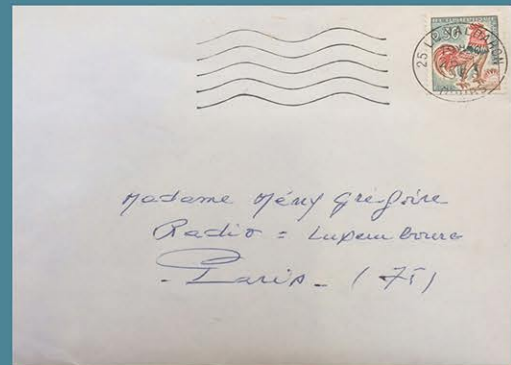 25 VALDAHON
Madame Mény Grégoire
Radio = Luxembourg
- Paris - (75)